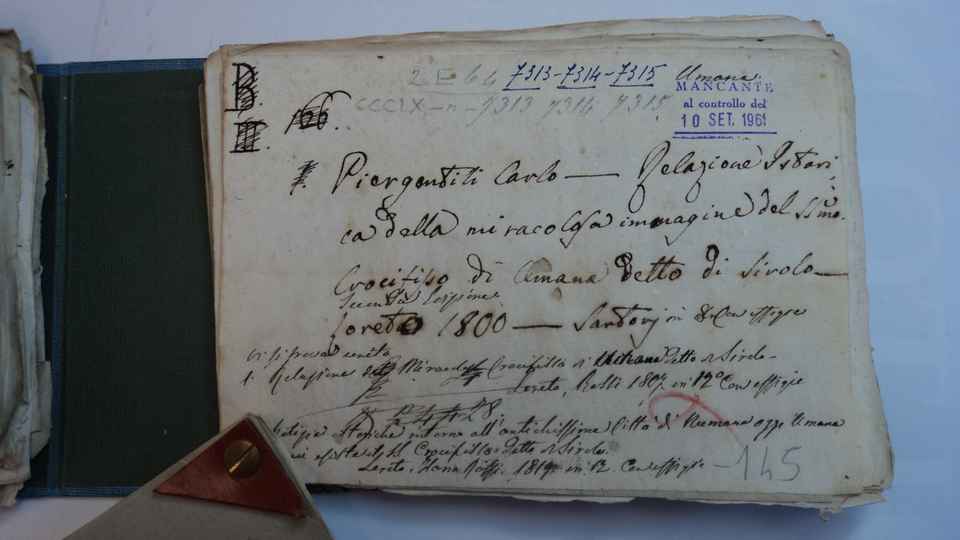 B. 2 E 64 7313-7314-7315 Umana
MANCANTE
CCCIX-n-7313 7314 7315 al controllo del
166. 10 SET. 1961
Piergentili Carlo — Relazione Istori
ca della miracolosa immagine del SSmo.
Crocifisso di Umana detto di Sirolo —
Seconda
Loreto 1800 — Sartorj in 8 Con effigie
vi si trova unito
1. Relazione del Crocifisso di detto di Sirolo
Loreto, Rossi 180 in 12° Con effigie
Notizie Storiche intorno all'antichissima Città di Numana oggi Umana
il Crocifisso detto di Sirolo.
Loreto, Rossi. 181 in 12 Con effigie - 145